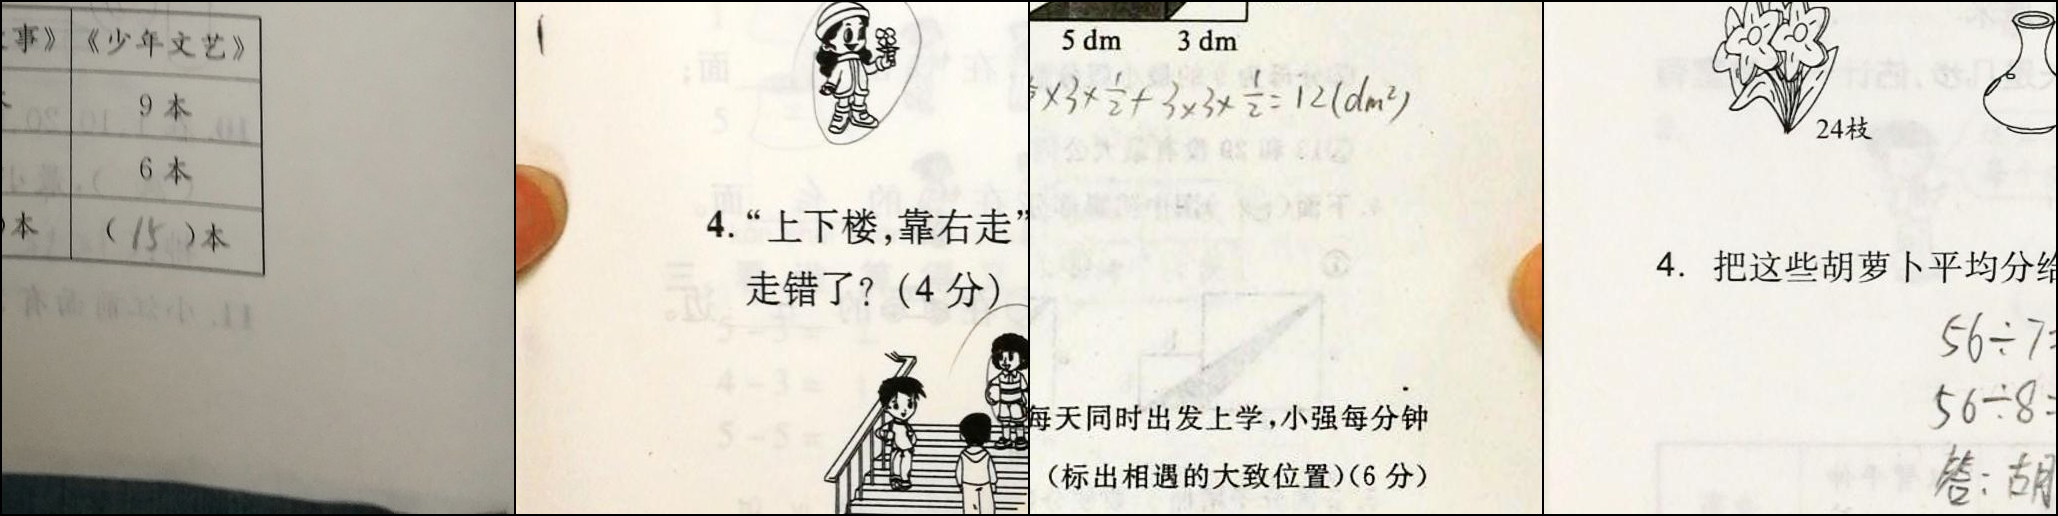 事》 《少年文艺》
9本
6本
)本 (15)本
4. “上下楼,靠右走”
走错了?(4分)
5 dm 3 dm
×3×1/2+3×3×1/2=12(dm²)
每天同时出发上学,小强每分钟
(标出相遇的大致位置)(6分)
24枝
4. 把这些胡萝卜平均分给
56÷7=
56÷8=
答:胡